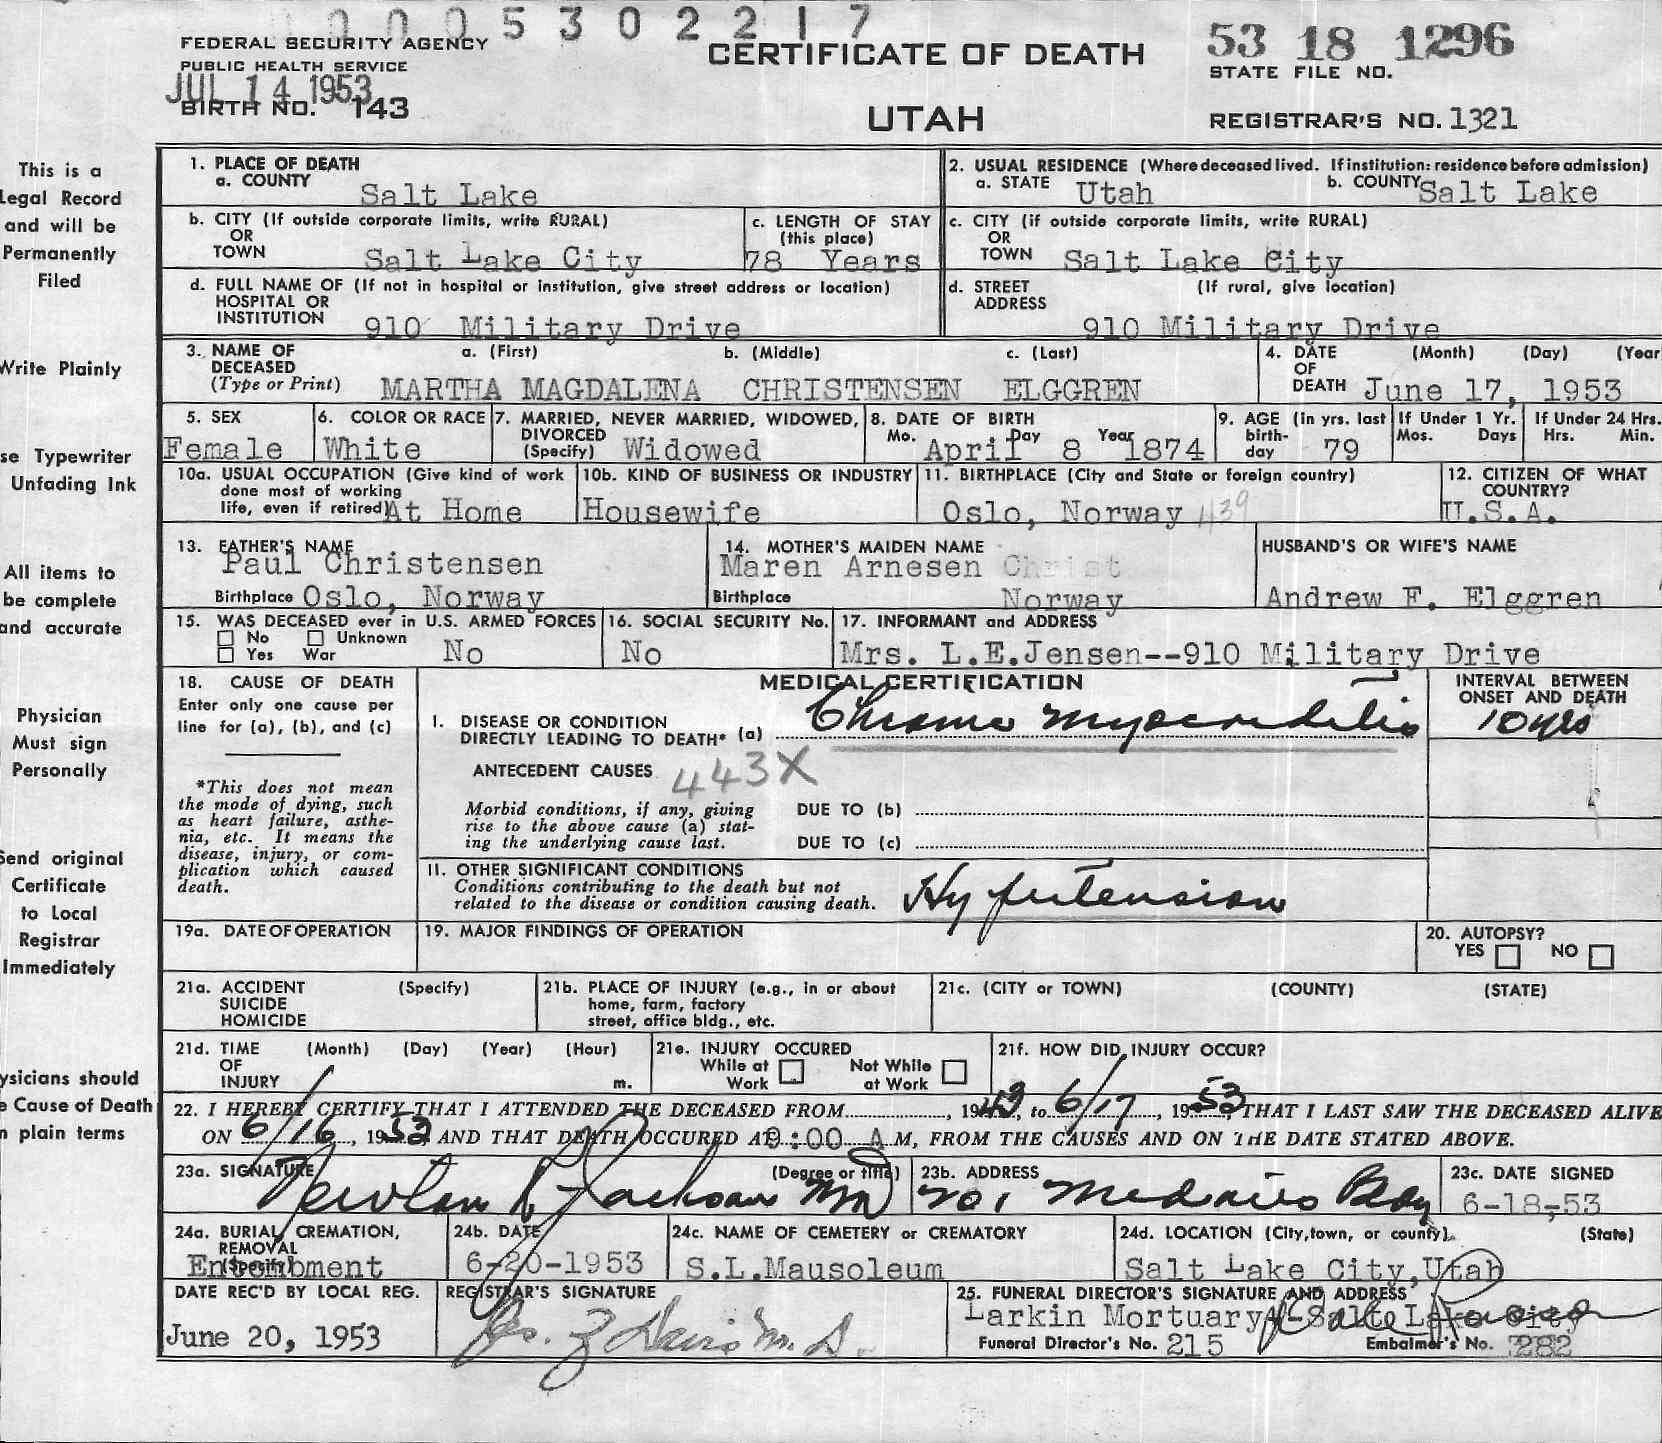 0005302217
FEDERAL SECURITY AGENCY
PUBLIC HEALTH SERVICE
JUL 14 1953
BIRTH NO. 143
CERTIFICATE OF DEATH
UTAH
53 18 1296
STATE FILE NO.
REGISTRAR'S NO. 1321
This is a
Legal Record
and will be
Permanently
Filed
Write Plainly
se Typewriter
Unfading Ink
All items to
be complete
and accurate
Physician
Must sign
Personally
Send original
Certificate
to Local
Registrar
Immediately
ysicians should
e Cause of Death
n plain terms
1. PLACE OF DEATH
a. COUNTY Salt Lake
2. USUAL RESIDENCE (Where deceased lived. If institution: residence before admission)
a. STATE Utah b. COUNTY Salt Lake
b. CITY (If outside corporate limits, write RURAL)
OR
TOWN Salt Lake City
c. LENGTH OF STAY
(this place)
78 Years
c. CITY (if outside corporate limits, write RURAL)
OR
TOWN Salt Lake City
d. FULL NAME OF (If not in hospital or institution, give street address or location)
HOSPITAL OR
INSTITUTION 910 Military Drive
d. STREET (If rural, give location)
ADDRESS 910 Military Drive
3. NAME OF DECEASED a. (First) b. (Middle) c. (Last)
(Type or Print) MARTHA MAGDALENA CHRISTENSEN ELGGREN
4. DATE (Month) (Day) (Year
OF
DEATH June 17, 1953
5. SEX
Female
6. COLOR OR RACE
White
7. MARRIED, NEVER MARRIED, WIDOWED,
DIVORCED
(Specify) Widowed
8. DATE OF BIRTH
Mo. Day Year
April 8 1874
9. AGE (in yrs. last
birth-
day 79
If Under 1 Yr.
Mos. Days
If Under 24 Hrs.
Hrs. Min.
10a. USUAL OCCUPATION (Give kind of work
done most of working
life, even if retired) At Home
10b. KIND OF BUSINESS OR INDUSTRY
Housewife
11. BIRTHPLACE (City and State or foreign country)
Oslo, Norway
12. CITIZEN OF WHAT
COUNTRY?
U.S.A.
13. FATHER'S NAME
Paul Christensen
Birthplace Oslo, Norway
14. MOTHER'S MAIDEN NAME
Maren Arnesen Christ
Birthplace Norway
HUSBAND'S OR WIFE'S NAME
Andrew F. Elggren
15. WAS DECEASED ever in U.S. ARMED FORCES
No Unknown
Yes War No
16. SOCIAL SECURITY No.
No
17. INFORMANT and ADDRESS
Mrs. L.E.Jensen--910 Military Drive
18. CAUSE OF DEATH
Enter only one cause per
line for (a), (b), and (c)
*This does not mean
the mode of dying, such
as heart failure, asthe-
nia, etc. It means the
disease, injury, or com-
plication which caused
death.
MEDICAL CERTIFICATION
I. DISEASE OR CONDITION
DIRECTLY LEADING TO DEATH* (a) Chronic myocarditis
INTERVAL BETWEEN
ONSET AND DEATH
10 yrs
ANTECEDENT CAUSES 443X
Morbid conditions, if any, giving
rise to the above cause (a) stat-
ing the underlying cause last.
DUE TO (b)
DUE TO (c)
II. OTHER SIGNIFICANT CONDITIONS
Conditions contributing to the death but not
related to the disease or condition causing death.
Hypertension
19a. DATE OF OPERATION
19. MAJOR FINDINGS OF OPERATION
20. AUTOPSY?
YES NO
21a. ACCIDENT (Specify)
SUICIDE
HOMICIDE
21b. PLACE OF INJURY (e.g., in or about
home, farm, factory
street, office bldg., etc.
21c. (CITY or TOWN) (COUNTY) (STATE)
21d. TIME (Month) (Day) (Year) (Hour)
OF
INJURY m.
21e. INJURY OCCURED
While at Work Not While at Work
21f. HOW DID INJURY OCCUR?
22. I HEREBY CERTIFY THAT I ATTENDED THE DECEASED FROM , 1943, to 6/17, 1953, THAT I LAST SAW THE DECEASED ALIVE
ON 6/16, 1953 AND THAT DEATH OCCURED AT :00 A M, FROM THE CAUSES AND ON THE DATE STATED ABOVE.
23a. SIGNATURE (Degree or title)
Jackson MD
23b. ADDRESS
701 Medical Arts Bldg
23c. DATE SIGNED
6-18-53
24a. BURIAL, CREMATION,
REMOVAL
(Specify)
Entombment
24b. DATE
6-20-1953
24c. NAME OF CEMETERY OR CREMATORY
S.L.Mausoleum
24d. LOCATION (City,town, or county) (State)
Salt Lake City,Utah
DATE REC'D BY LOCAL REG.
June 20, 1953
REGISTRAR'S SIGNATURE
25. FUNERAL DIRECTOR'S SIGNATURE AND ADDRESS
Larkin Mortuary--Salt Lake City
Funeral Director's No. 215
Embalmer's No. 282